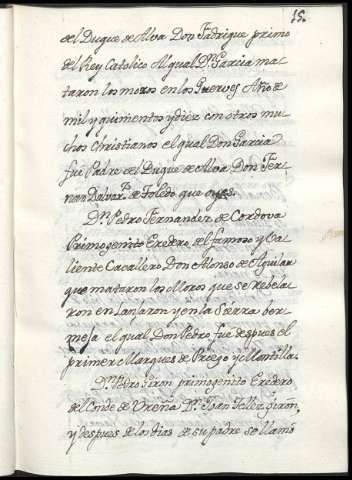 15.
del Duque de Alva Don Fadrique primo
del Rey Catolico Al qual Dn. Garcia ma-
taron los moros en los Guerves Año de
mil y quinientos y diez con otros mu-
chos Christianos el qual Don Garcia
fue Padre del Duque de Alva Don Fer-
nando Alvar. de Toledo que oy es.
Dn. Pedro Fernandez de Cordova
Primogenito Eredero del famoso y Va-
liente Cavallero Don Alonso de Aguilar
que mataron los Moros que se Rebela-
ron en Lanjaron y en la Sierra ber-
meja el qual Don Pedro fue despues el
primer Marques de Priego y Montilla.
Dn. Pedro Giron primogenito Eredero
del Conde de Ureña Dn. Joan Tellez Giron,
y despues de los dias de su padre se llamó